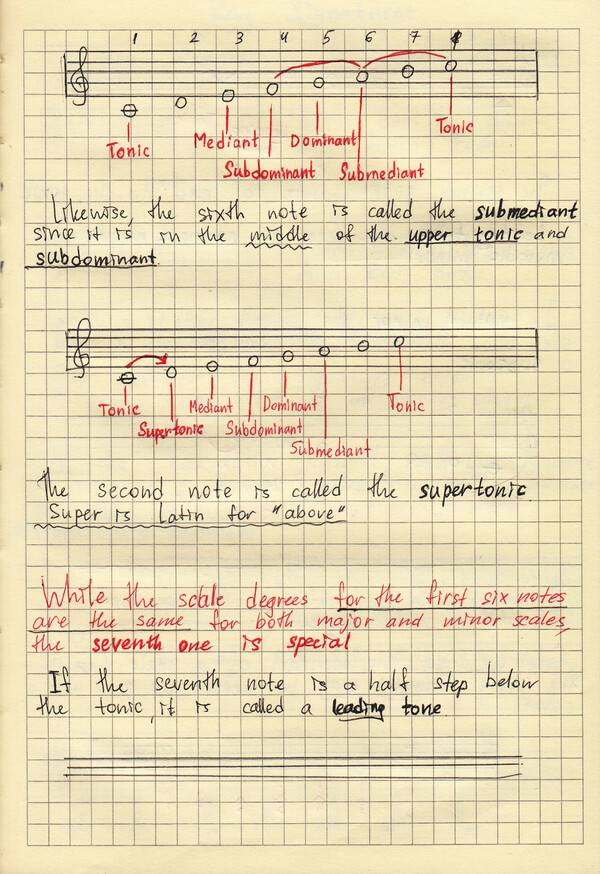 1 2 3 4 5 6 7
Tonic Mediant Dominant Tonic
Subdominant Submediant
Likewise, the sixth note is called the submediant
since it is in the middle of the upper tonic and
subdominant.
Tonic Mediant Dominant Tonic
Supertonic Subdominant
Submediant
The second note is called the supertonic.
Super is Latin for "above"
While the scale degrees for the first six notes
are the same for both major and minor scales,
the seventh one is special
If the seventh note is a half step below
the tonic, it is called a leading tone.